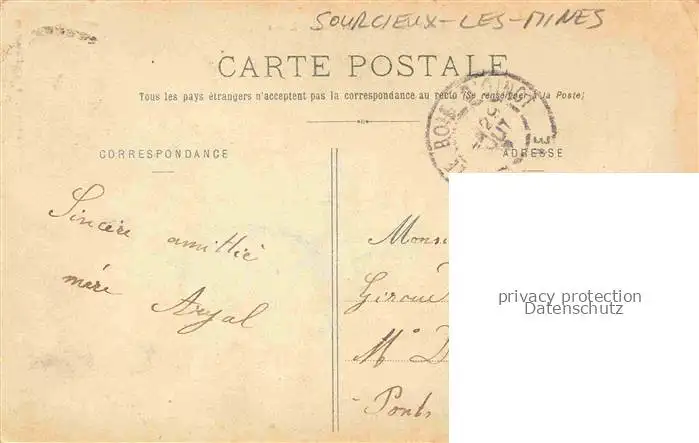 SOURCIEUX-LES-MINES
CARTE POSTALE
Tous les pays étrangers n'acceptent pas la correspondance au recto (Se renseigner à la Poste)
CORRESPONDANCE
ADRESSE
LE BOIS D'OINGT
Sincère amittié
mère Aryal
Monsi
Girou
M° D
Ponts
privacy protection
Datenschutz